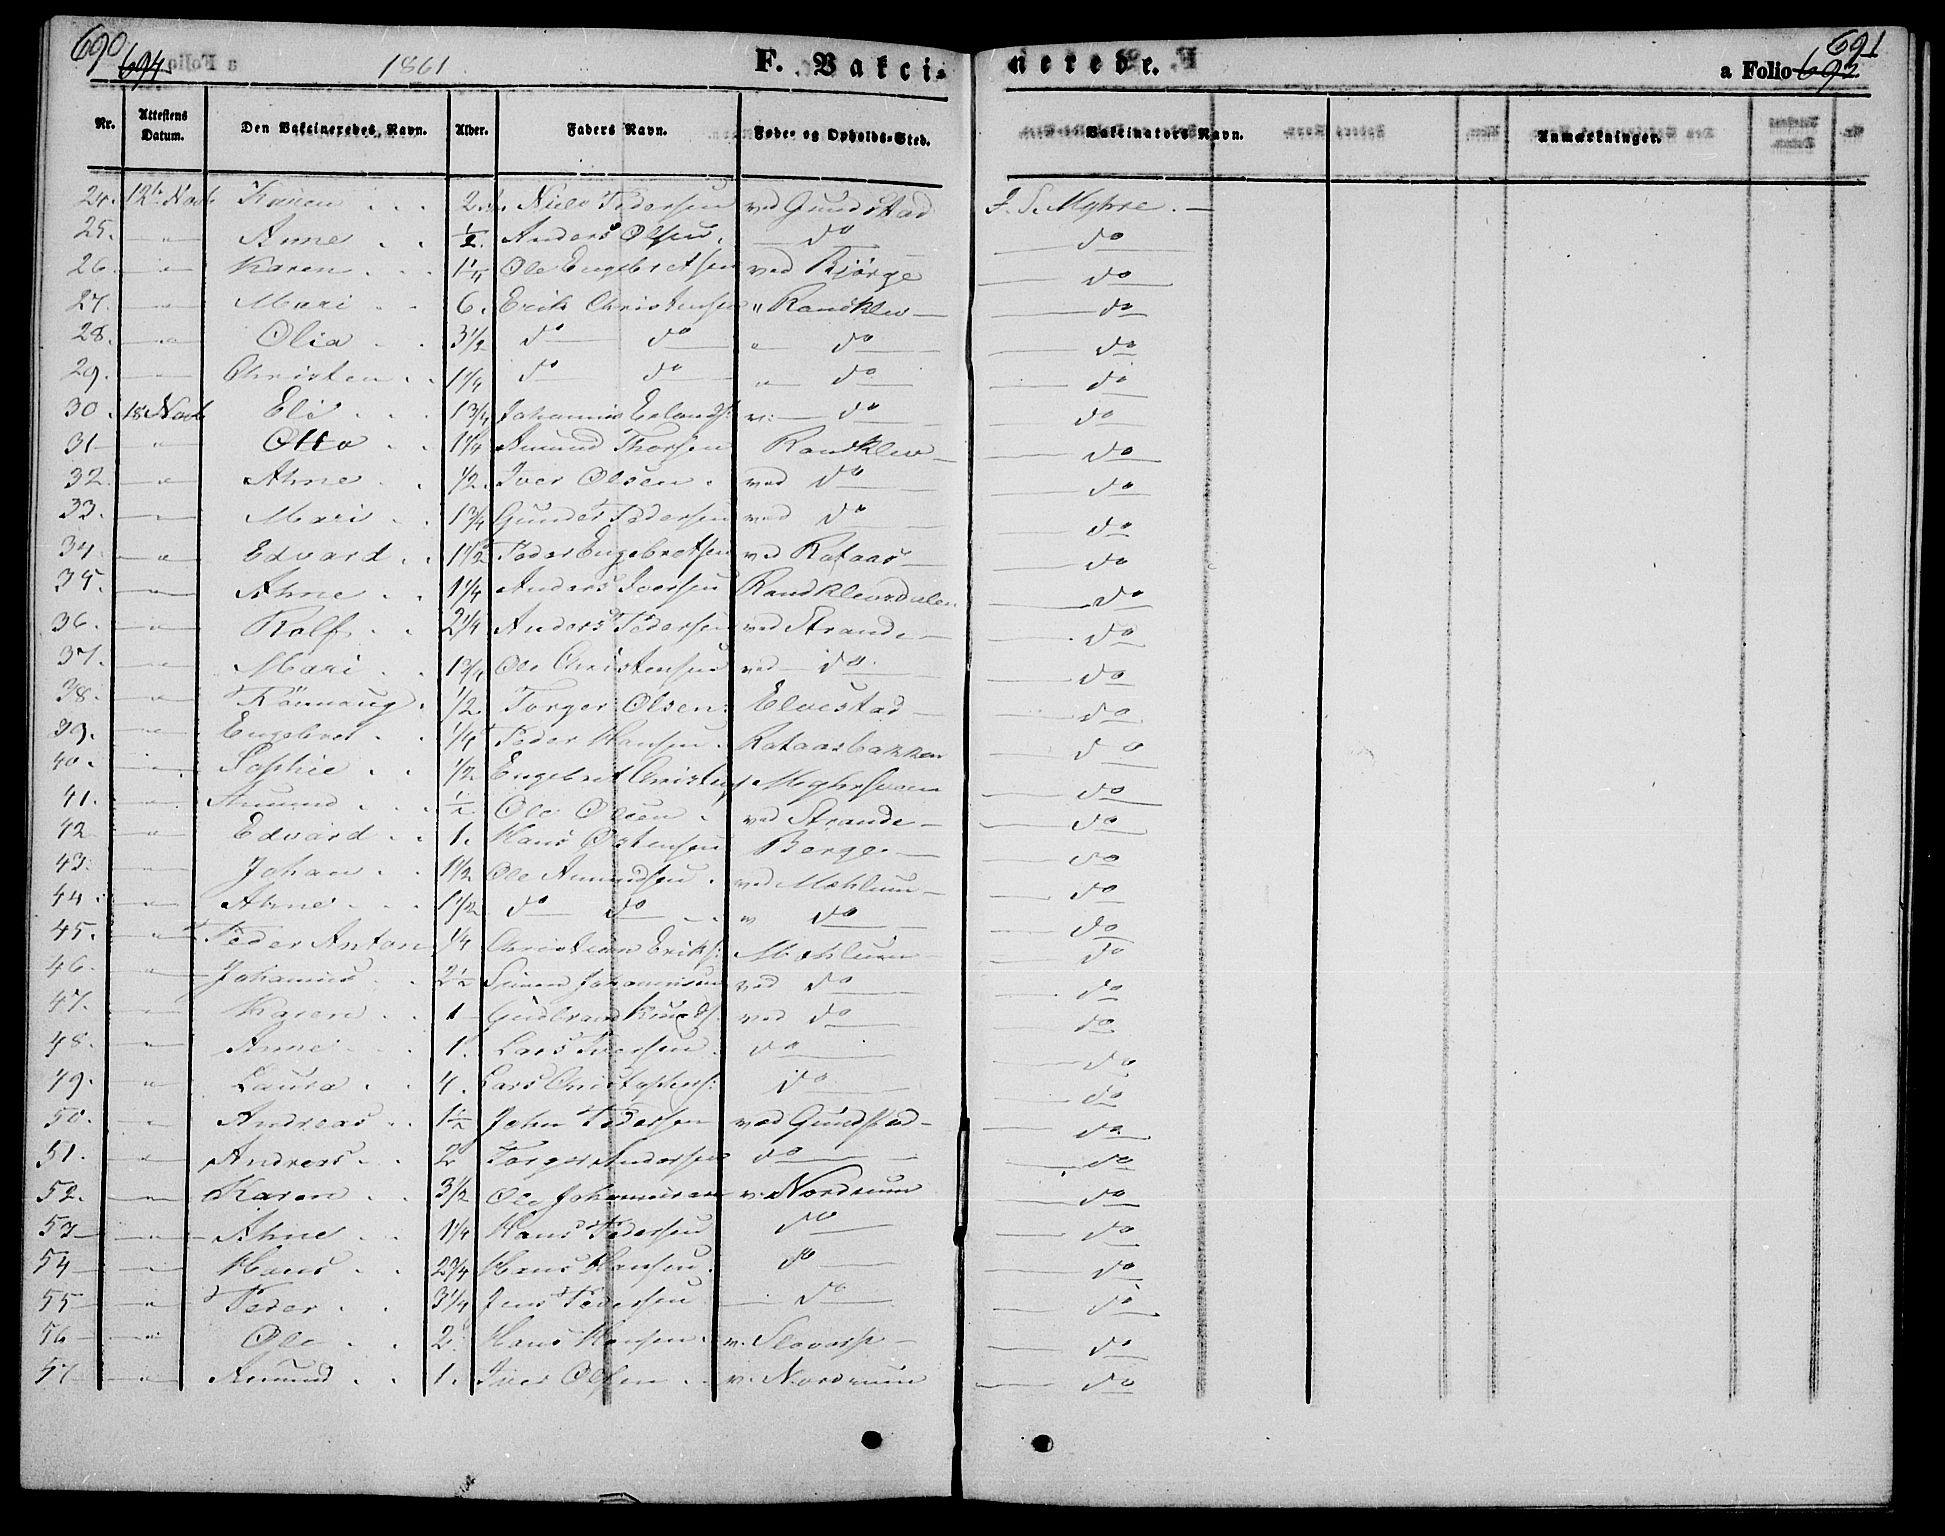 690 694 1861. F. Vakci-nerede. a Folio 692 691
Nr. Attestens Datum. Den Vakcineredes Navn. Alder. Faders Navn. Føde- og Opholds-Sted. Vakcinators Navn. Anmærkninger.
24. 12te Novb Karen . . . 2. Niels Pedersen ved Gundstad J. S. Myhre. —
25. " Anne . . ½. Anders Olsen. do do
26. " Karen . . . 1¼ Ole Engebretsen ved Bjørge do
27. " Mari . . 6. Erik Christensen " Randklev do
28. " Olia . . 3½ do do " do do
29. " Christen . . 1¼ do do " do do
30. 18 Novb Eli . . . 1¾ Johannis Erlands: v: do do
31 " Otto . . 1¼ Amund Thorsen Randklev do
32. " Ahne . . ½. Iver Olsen. ved do do
33. " Mari . . 1¾ Gunder Pedersen ved do do
34. " Edvard . . 1½ Peder Engebretsen vd Rataas do
35. " Ahne . . 1¼ Anders Iversen Randklevdalen do
36. " Rolf . . 2¼ Anders Pedersen ved Strande do
37. " Mari . . 1¾ Ole Christensen ved do do
38. " Rönnaug . ½ Torger Olsen: Elvestad do
39. " Engebret . . ¼ Peder Hansen. Rataasbakken do
40. " Sophie . . ½ Engebret do
41. " Amund . . ½ Ole Olsen . ved Strande do
42 " Edvard . . 1. Hans Østensen Berge do
43. " Johan . . 1½ Ole Amundsen . ved Mæhlum do
44. " Ahne . . . 1½ do do " do do
45. " Peder Anton ¼ Christian Eriks: Mæhlum do
46. " Johannes . . 2½ Simen Johannisen ved do do
47. " Karen . . 1 Gudbrand Knuds. ved do do
48. " Anne . . 1. Lars Iversen. do do
49. " Laura . . 4. Lars Christophers: do do
50. " Andreas . . 1½ John Pedersen ved Gundstad do
51. " Andreas . . 2 Torger Andersen do do
52. " Karen . . 3½ Ole Johannisen v. Nordrum do
53 " Ahne . . 1¼ Hans Pedersen do do
54 " Hans . . 2¾ Hans Hansen. do do
55 " Peder . . 3¼ Jens Pedersen do do
56 " Ole . . 2. Hans Hansen. v. do
57 " Amund . . 1. Iver Olsen . . v. Nordrum do